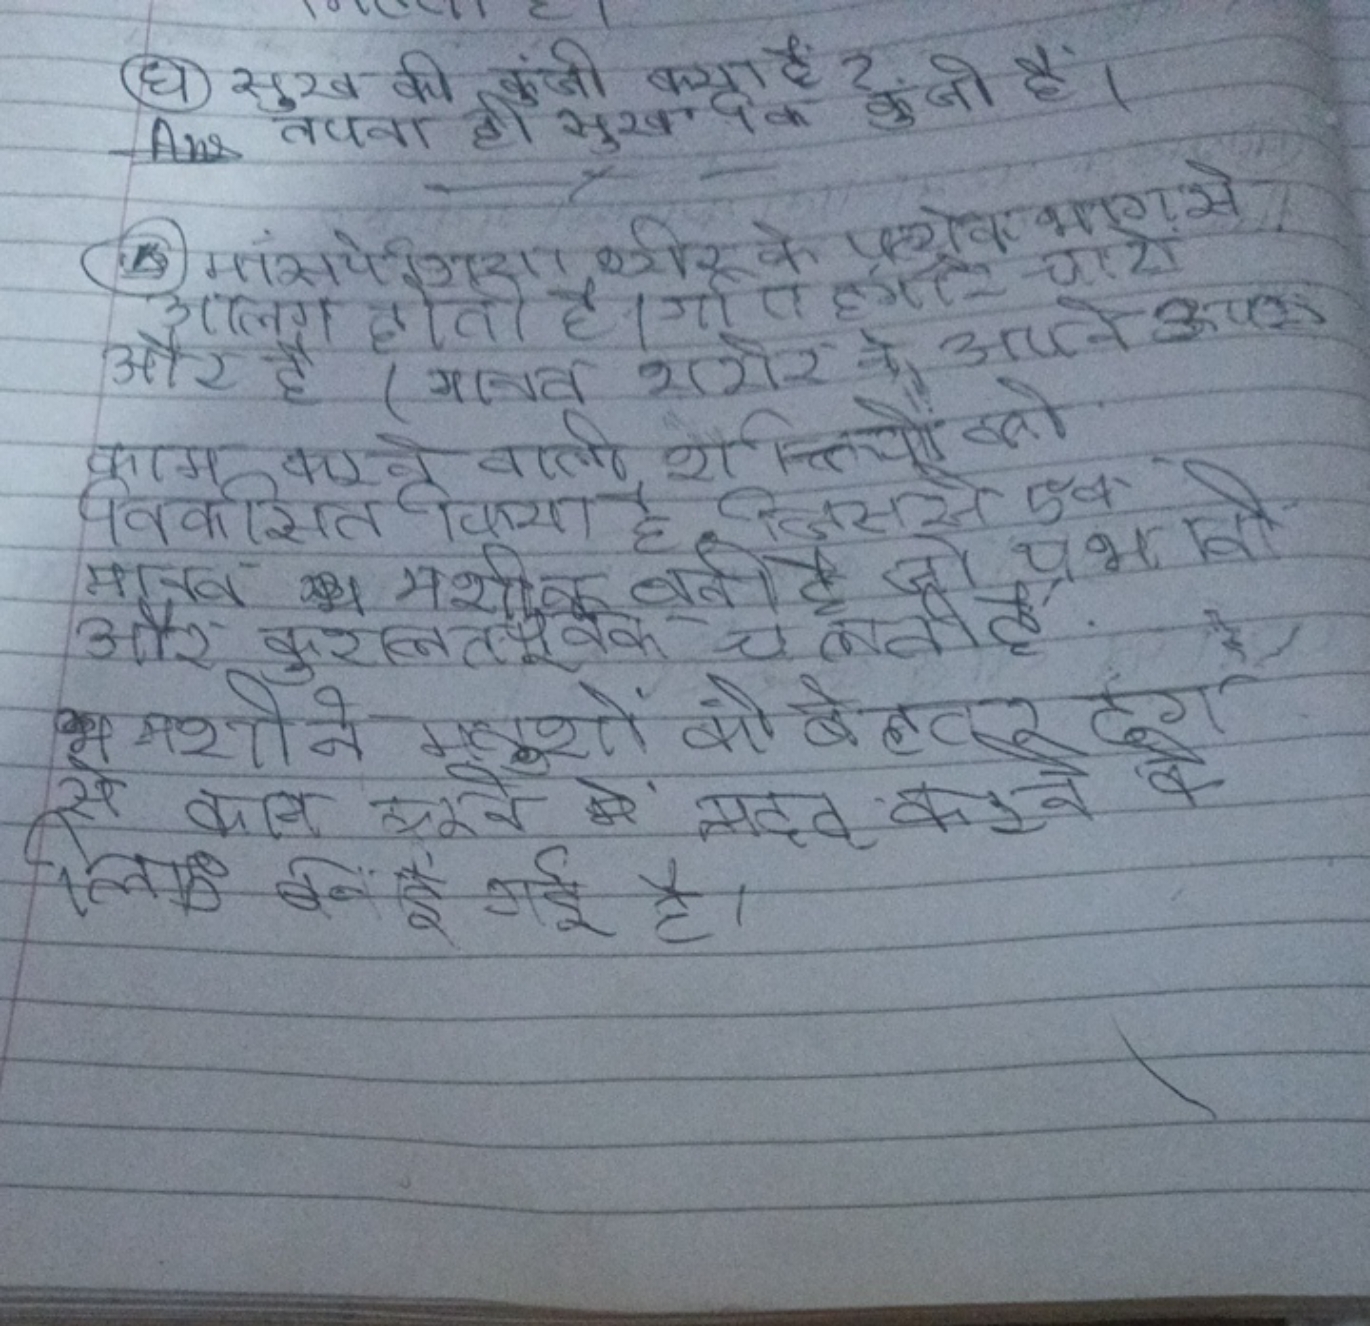 (घ) सुख की कुंजी क्या है ?
Ans तपना ही सुख कुंजी है।
मांसपेशिया शरीर के प्रत्येक भाग से
अलिग होती है। गति हमारे चारो
और है। मानव शरीर ने अपने
काम करने वाली शक्तियों को
विकसित किया है, जिससे एक
मानव मशीन बनी है जो प्रभावी
और कुशलतपूर्वक चलती है.
है।
मशीने मनुशों को बेहतर ढंग
से काम करने में मदद करने के
लिए गई है।